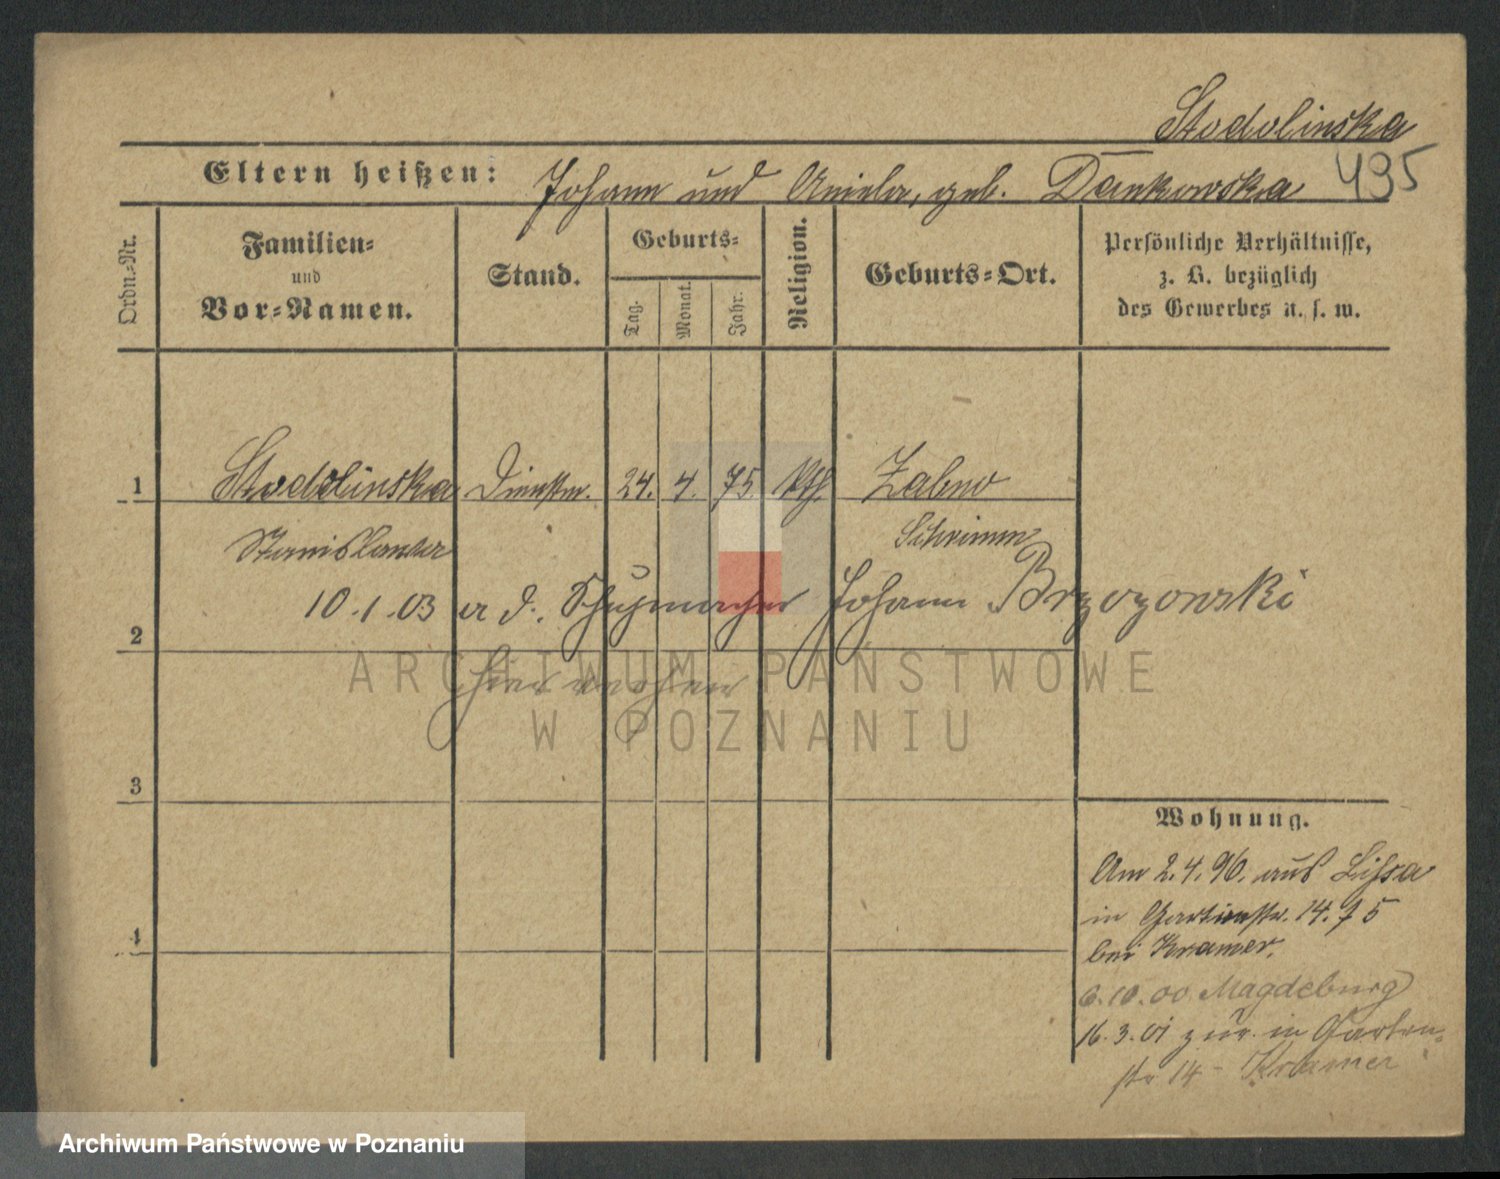 Stodolinska
495
Eltern heißen: Johann und Aniela, geb. Dankowska
Ordn.-Nr.
Familien-
und
Vor-Namen.
Stand.
Geburts-
Tag.
Monat.
Jahr.
Religion.
Geburts-Ort.
Persönliche Verhältnisse,
z. B. bezüglich
des Gewerbes u. s. w.
1 Stodolinska Dienstm. 24. 4. 75. kth. Zabno
Stanislawa Schrimm
10.1.03 a d. Schuhmacher Johann Brzozowski
2
hier
ARCHIWUM PAŃSTWOWE
W POZNANIU
3
4
Wohnung.
Am 2.4.96. aus Lissa
in Gartenstr. 14. f 5
bei Kramer.
6.10.00 Magdeburg
16.3.01 zur. in Garten-
str 14 - Kramer
Archiwum Państwowe w Poznaniu